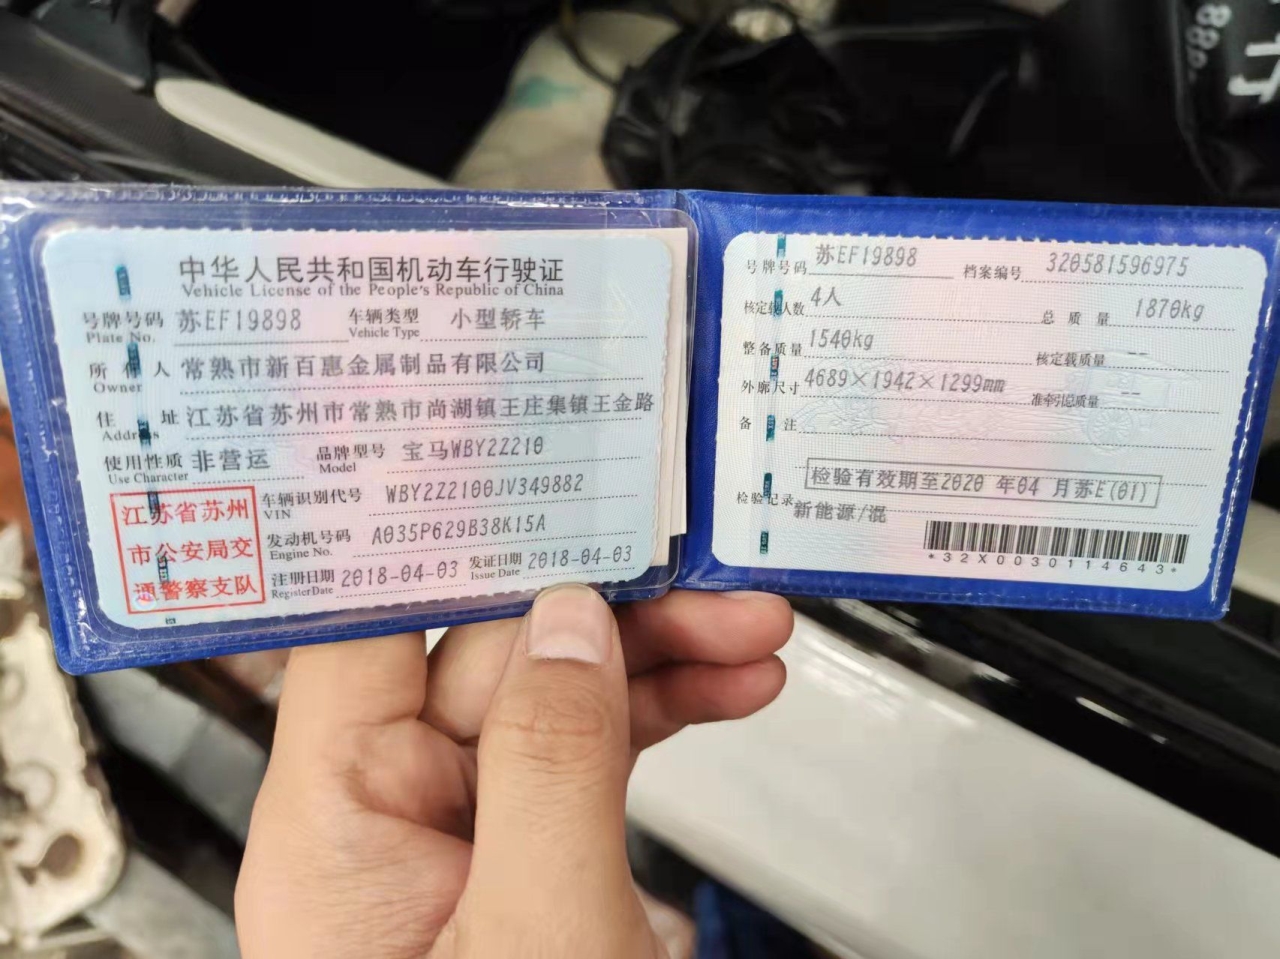 中华人民共和国机动车行驶证
Vehicle License of the People's Republic of China
号牌号码 苏EF19898 车辆类型 小型轿车
Plate No. Vehicle Type
所有人 常熟市新百惠金属制品有限公司
Owner
住址 江苏省苏州市常熟市尚湖镇王庄集镇王金路
Address
使用性质 非营运 品牌型号 宝马WBY2Z210
Use Character Model
江苏省苏州
市公安局交
通警察支队
车辆识别代号 WBY2Z2100JV349882
VIN
发动机号码 A035P629B38K15A
Engine No.
注册日期 2018-04-03 发证日期 2018-04-03
Register Date Issue Date
号牌号码 苏EF19898 档案编号 320581596975
核定载人数 4人 总质量 1870kg
整备质量 1540kg 核定载质量 --
外廓尺寸 4689×1942×1299mm 准牵引总质量 --
备注
检验有效期至2020 年04 月苏E(01)
检验记录
新能源/混
*32X0030114643*